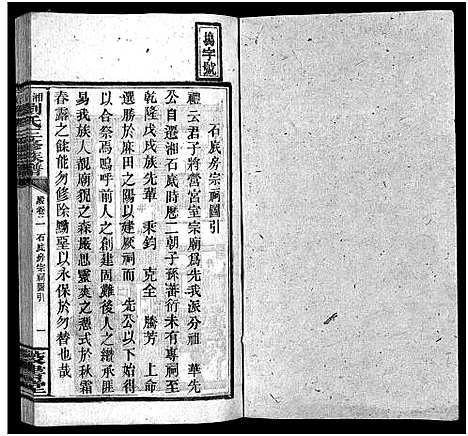 塢字號
石底房宗祠圖引
禮云君子將營宮室宗廟為先我派分祖 華先
公自遷湘石底時歷二朝子孫蕃衍未有專祠至
乾隆戊戌族先輩 秉鈞 克全 騰芳 上命
選勝於麻田之陽以建厥祠而 先公以下始得
以合祭焉嗚呼前人之創其難後人之繼承匪
易我族人覩廟貌之森嚴思靈爽之憑式於秋霜
春露之餘能勿修除黝堊以永保於勿替也哉
劉氏三修族譜
卷二 石底房宗祠圖引 一